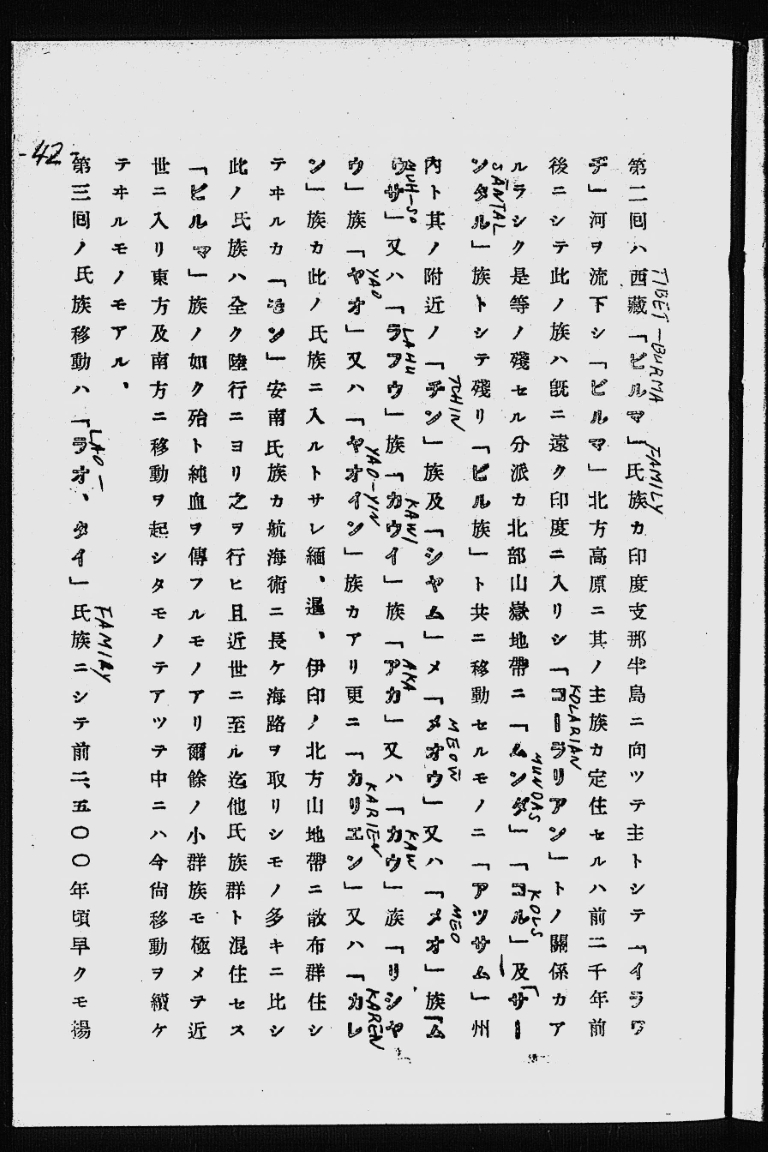 -42-
第二囘ハ西藏「ビルマ」氏族カ印度支那半島ニ向ツテ主トシテ「イラワ
TIBET-BURMA FAMILY
デ」河ヲ流下シ「ビルマ」北方高原ニ其ノ主族カ定住セルハ前二千年前
後ニシテ此ノ族ハ旣ニ遠ク印度ニ入リシ「コーラリアン」トノ關係カア
KOLARIAN
ルラシク是等ノ殘セル分派カ北部山嶽地帶ニ「ムンダ」「コル」及「サー
MUNDAS
KOLS
ンタル」族トシテ殘リ「ビル族」ト共ニ移動セルモノニ「アツサム」州
SĀNTAL
內ト其ノ附近ノ「チン」族及「シヤム」メ「メオウ」又ハ「メオ」族「ム
TCHIN
MEOW
MEO
ウサ」又ハ「ラフウ」族「カウイ」族「アカ」又ハ「カウ」族「リシヤ
MUH-SO
LAHU
KAWI
AKA
KAW
ウ」族「ヤオ」又ハ「ヤオイン」族カアリ更ニ「カリエン」又ハ「カレ
YAO
YAO-YIN
KARIEN
KAREN
ン」族カ此ノ氏族ニ入ルトサレ緬、暹、伊印ノ北方山地帶ニ散布群住シ
テヰルカ「モン」安南氏族カ航海術ニ長ケ海路ヲ取リシモノ多キニ比シ
此ノ氏族ハ全ク陸行ニヨリ之ヲ行ヒ且近世ニ至ル迄他氏族群ト混住セス
「ビルマ」族ノ如ク殆ト純血ヲ傳フルモノアリ爾餘ノ小群族モ極メテ近
世ニ入リ東方及南方ニ移動ヲ起シタモノテアツテ中ニハ今尙移動ヲ續ケ
テヰルモノモアル、
第三囘ノ氏族移動ハ「ラオ、タイ」氏族ニシテ前二、五〇〇年頃早クモ揚
LAO-
FAMIRY